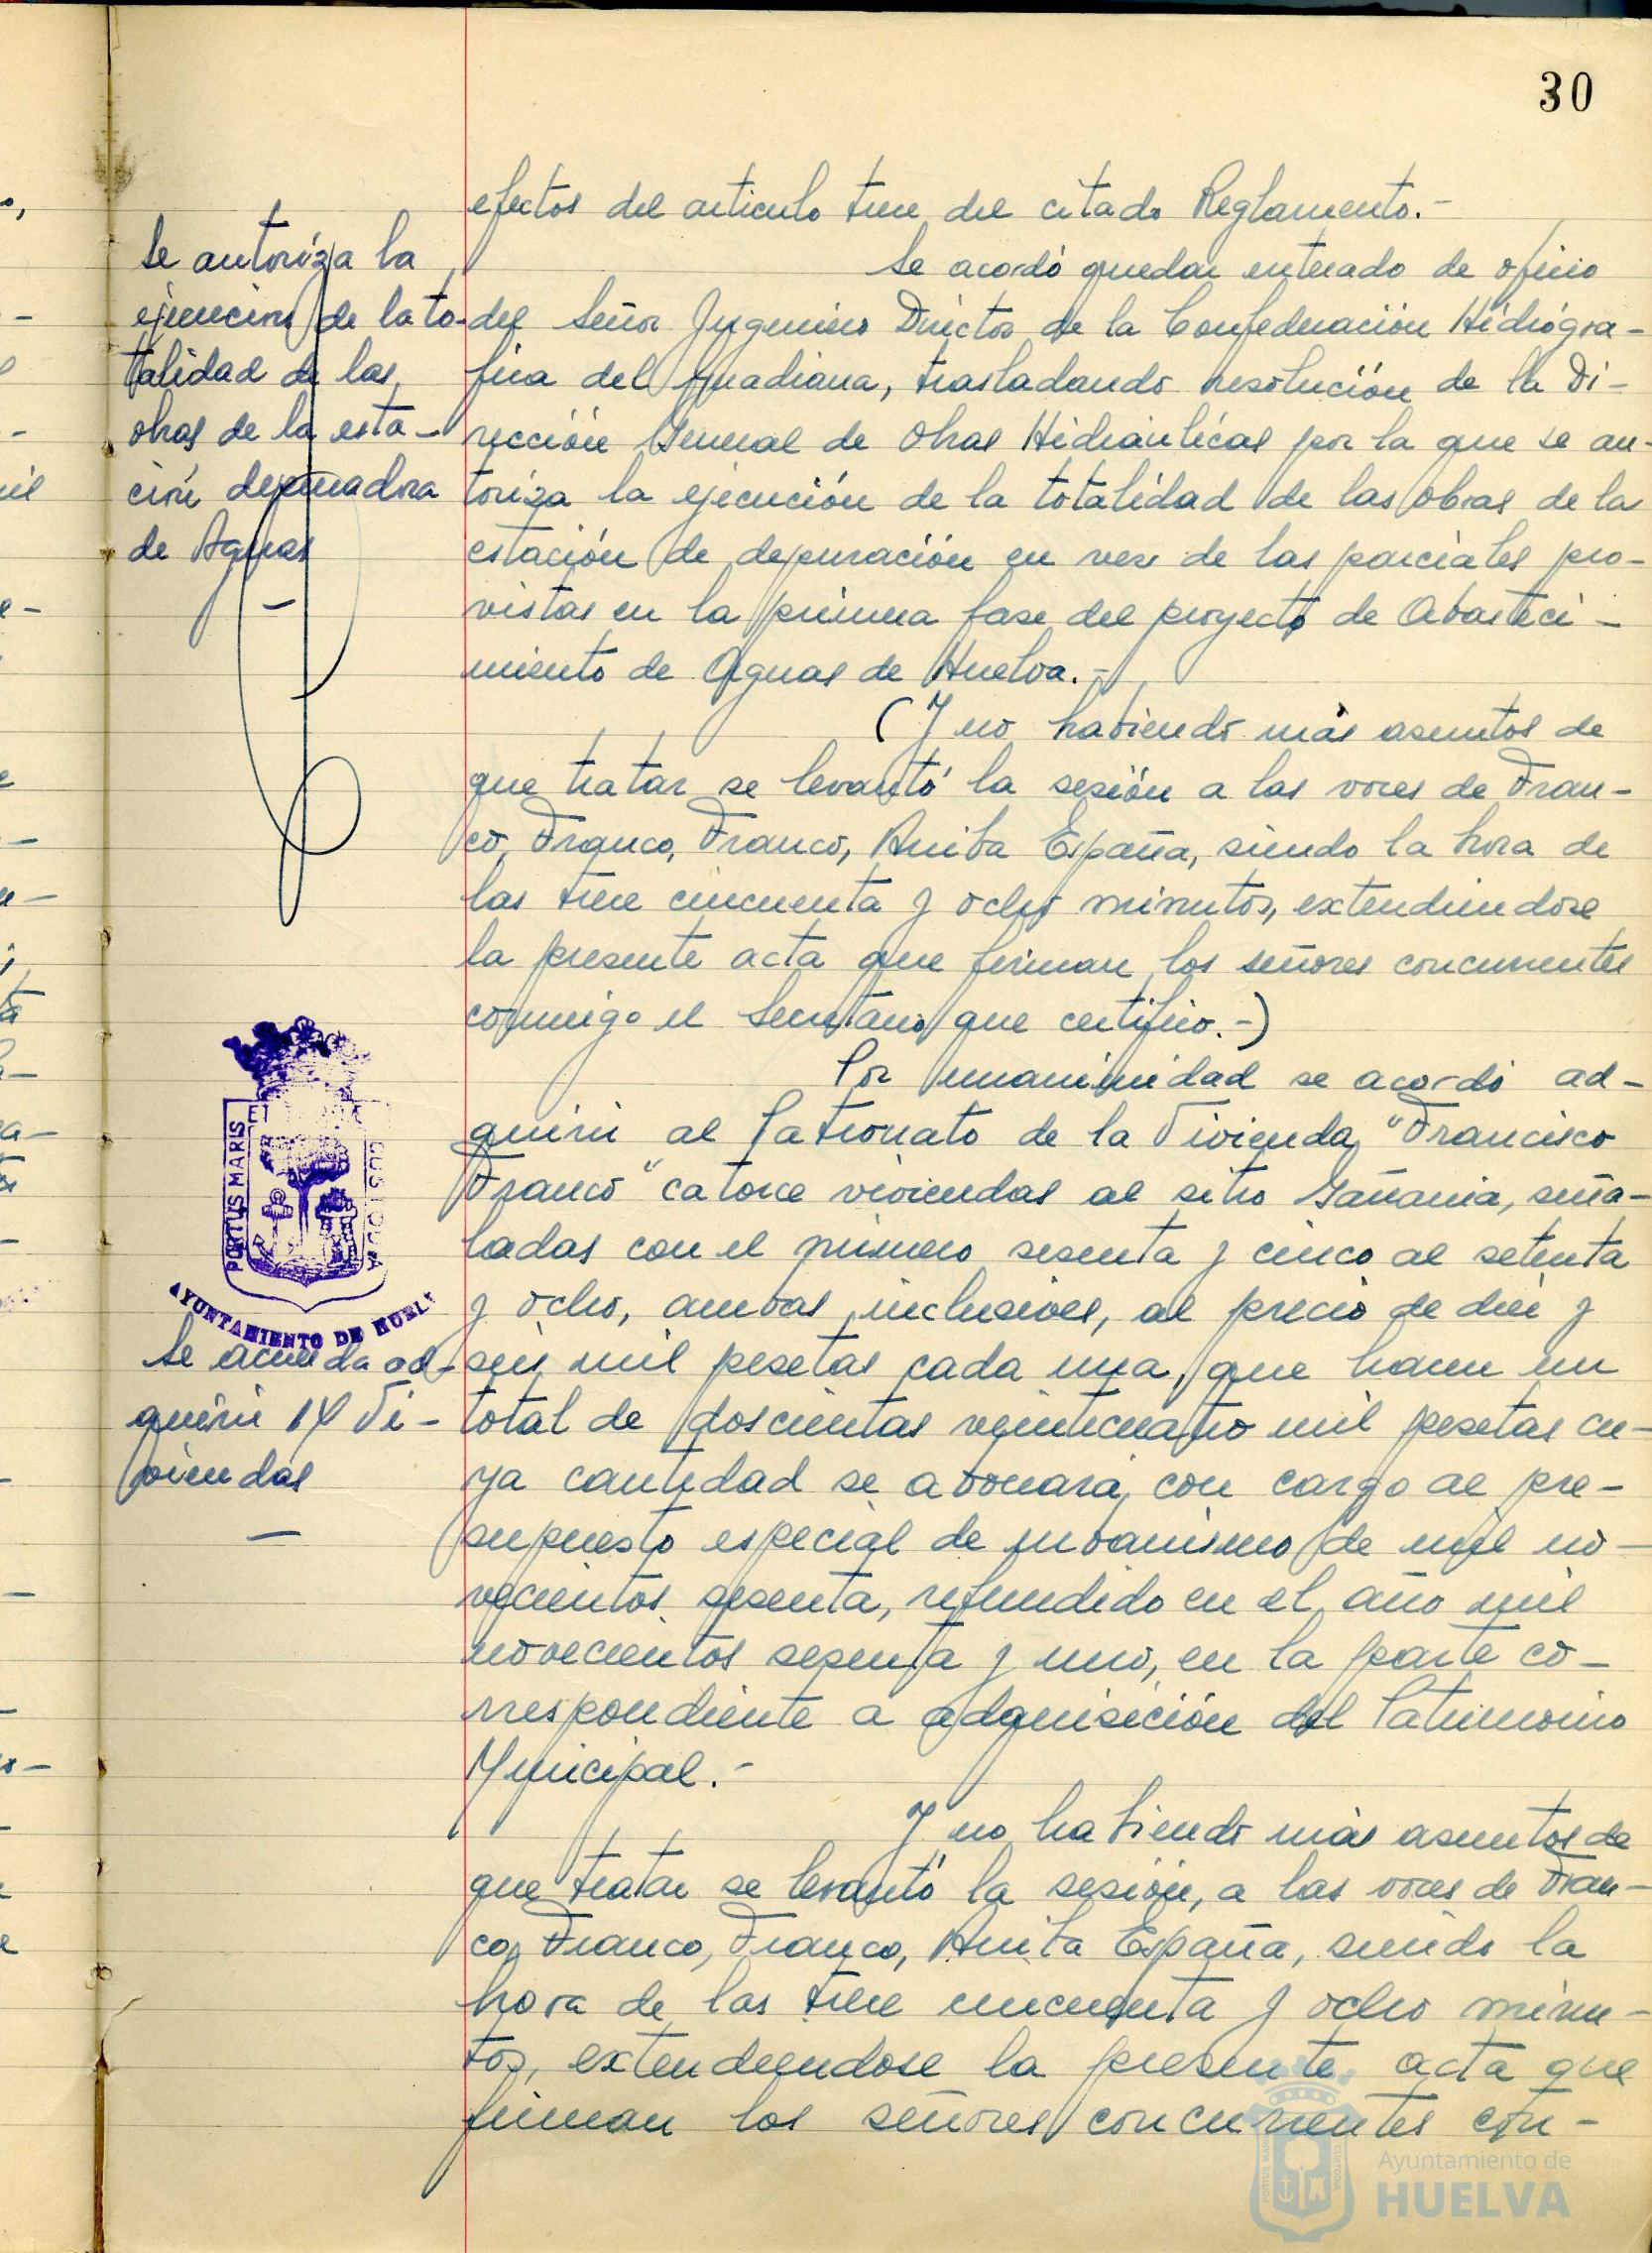 30
efectos del articulo trece del citado Reglamento.-
Se autoriza la
ejecucion de la to-
talidad de las
obras de la esta-
ción depuradora
de Aguas
Se acordó quedar enterado de oficio
del Señor Yngeniero Director de la Confederación Hidrógra-
fica del Guadiana, trasladando resolución de la Di-
rección General de Obras Hidráulicas por la que se au-
toriza la ejecución de la totalidad de las obras de la
estación de depuración en vez de las parciales pro-
vistas en la primera fase del proyecto de Abasteci-
miento de Aguas de Huelva.-
(Y no habiendo más asuntos de
que tratar se levantó la sesión a las voces de Fran-
co, Franco, Franco, Arriba España, siendo la hora de
las trece cincuenta y ocho minutos, extendiendose
la presente acta que firman los señores concurrentes
conmigo el Secretario que certifico.-)
PORTUS MARIS
ET
CUSTODIA
AYUNTAMIENTO DE HUELV
Se acuerda ad-
quirir 14 Vi-
viendas
Por unanimidad se acordó ad-
quirir al Patronato de la Vivienda "Francisco
Franco" catorce viviendas al sitio Gañania, seña-
ladas con el número sesenta y cinco al setenta
y ocho, ambas inclusives, al precio de diez y
seis mil pesetas cada una, que hacen un
total de doscientas veinticuatro mil pesetas cu-
ya cantidad se abonará con cargo al pre-
supuesto especial de urbanismo de mil no-
vecientos sesenta, refundido en el año mil
novecientos sesenta y uno, en la parte co-
rrespondiente a adquisición del Patrimonio
Municipal.-
Y no habiendo más asuntos de
que tratar se levantó la sesión, a las voces de Fran-
co, Franco, Franco, Arriba España, siendo la
hora de las trece cincuenta y ocho minu-
tos, extendiendose la presente acta que
firman los señores concurrentes con-
Ayuntamiento de
HUELVA